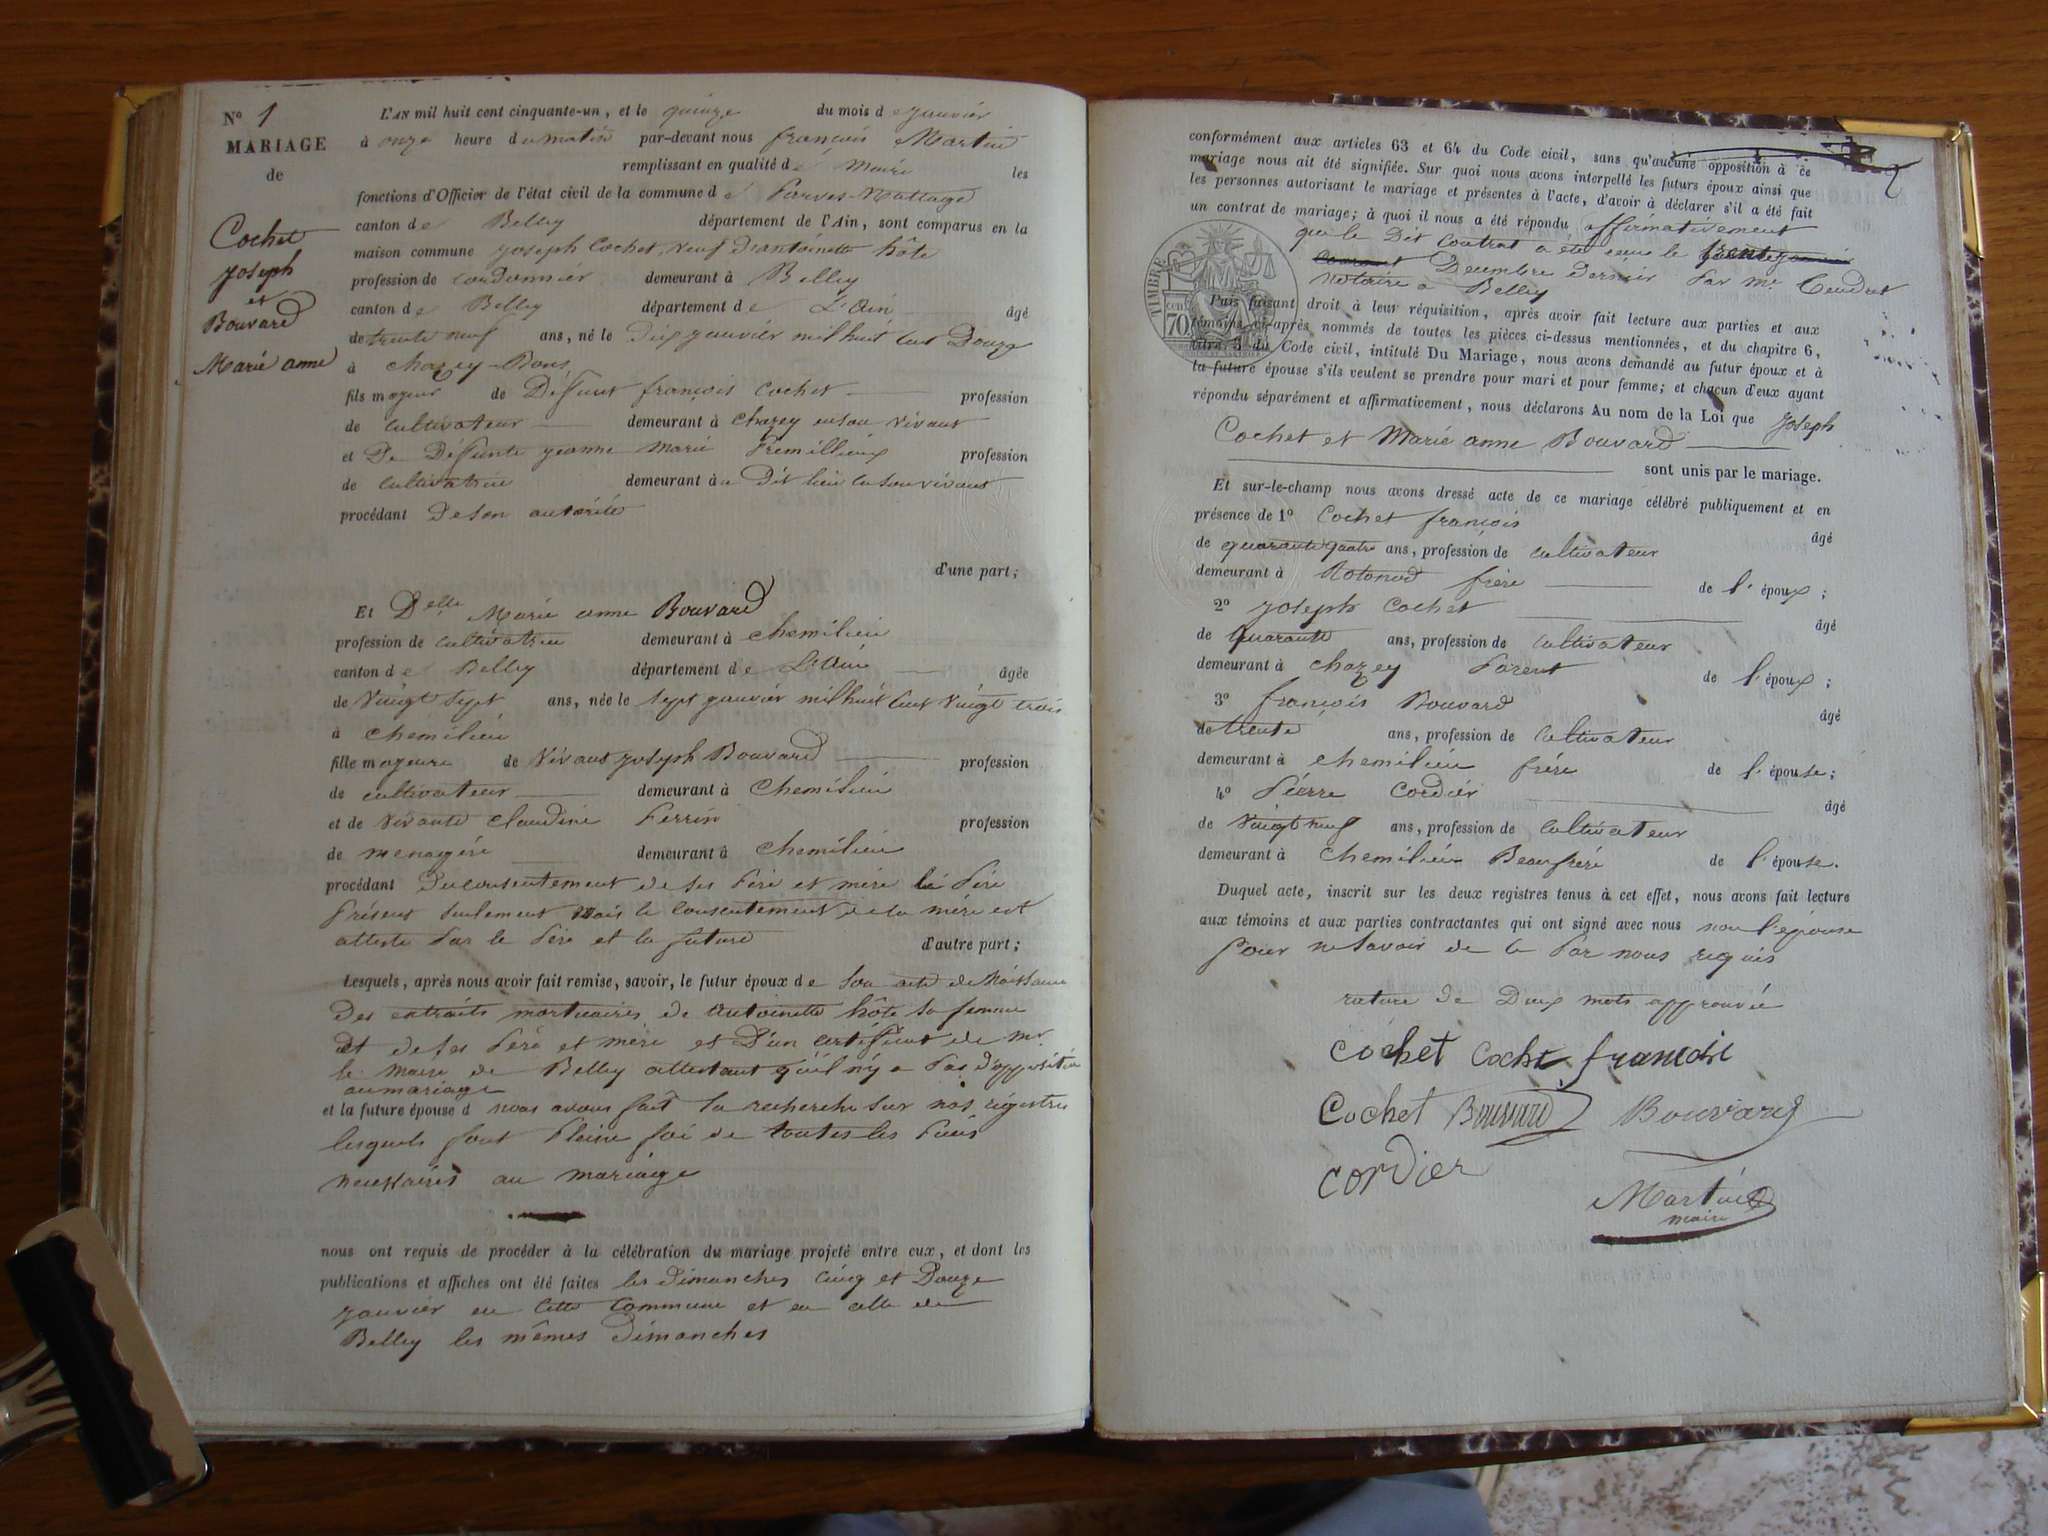 Nº 1
MARIAGE
de
Cochet
Joseph
et
Bouvard
Marie anne
L'AN mil huit cent cinquante-un, et le quinze du mois de janvier
à onze heure du matin par-devant nous françois Martin
remplissant en qualité de Maire les
fonctions d'Officier de l'état civil de la commune de Parves-Nattage
canton de Belley département de l'Ain, sont comparus en la
maison commune Joseph Cochet, veuf d'antoinette hôte
profession de cordonnier demeurant à Belley
canton de Belley département de L'Ain âgé
de trente neuf ans, né le Dix janvier mil huit cent Douze
à chazey-Bons
fils majeur de Deffunt françois Cochet profession
de cultivateur demeurant à chazey en son vivant
et De Deffunte jeanne Marie Premillieux profession
de cultivatrice demeurant au Dit lieu en son vivant
procédant De son autorité
d'une part;
Et Delle Marie anne Bouvard
profession de cultivatrice demeurant à chemilieu
canton de Belley département de L'Ain âgée
de Vingt sept ans, née le sept janvier mil huit cent Vingt trois
à chemilieu
fille majeure de Vivant joseph Bouvard profession
de cultivateur demeurant à Chemilieu
et de Vivante claudine Perrin profession
de menagère demeurant à chemilieu
procédant Du consentement de ses Père et mère le Père
Présent seulement mais le consentement de la mère est
attesté Par le Père et la future d'autre part;
Lesquels, après nous avoir fait remise, savoir, le futur époux de son acte de Naissance
des extraits mortuaires de antoinette hôte sa femme
et de ses Père et mère et D'un certificat de mr
le maire de Belley attestant qu'il n'y a Pas D'opposition
au mariage
et la future épouse d nous avons fait la recherche sur nos régistres
lesquels font Pleine foi de toutes les Pièces
necessaires au mariage
nous ont requis de procéder à la célébration du mariage projeté entre eux, et dont les
publications et affiches ont été faites les dimanches Cinq et Douze
janvier en cette commune et en celle de
Belley les mêmes Dimanches
conformément aux articles 63 et 64 du Code civil, sans qu'aucune opposition à ce
mariage nous ait été signifiée. Sur quoi nous avons interpellé les futurs époux ainsi que
les personnes autorisant le mariage et présentes à l'acte, d'avoir à déclarer s'il a été fait
un contrat de mariage; à quoi il nous a été répondu affirmativement
que le Dit contrat a été reçu le trente
Decembre dernier Par Me Cendret
notaire a Belley
TIMBRE
70
Puis faisant droit à leur réquisition, après avoir fait lecture aux parties et aux
témoins ci-après nommés de toutes les pièces ci-dessus mentionnées, et du chapitre 6,
titre 5 du Code civil, intitulé Du Mariage, nous avons demandé au futur époux et à
la future épouse s'ils veulent se prendre pour mari et pour femme; et chacun d'eux ayant
répondu séparément et affirmativement, nous déclarons Au nom de la Loi que Joseph
Cochet et Marie anne Bouvard
sont unis par le mariage.
Et sur-le-champ nous avons dressé acte de ce mariage célébré publiquement et en
présence de 1º Cochet françois
âgé
de quarante quatre ans, profession de cultivateur
demeurant à Rotonod frère de l'époux;
2º Joseph Cochet
âgé
de quarante ans, profession de cultivateur
demeurant à Chazey Parent de l'époux;
3º françois Bouvard
âgé
de trente ans, profession de cultivateur
demeurant à chemilieu frère de l'épouse;
4º Pierre Cordier
âgé
de Vingt neuf ans, profession de cultivateur
demeurant à chemilieu Beaufrère de l'épouse.
Duquel acte, inscrit sur les deux registres tenus à cet effet, nous avons fait lecture
aux témoins et aux parties contractantes qui ont signé avec nous non l'épouse
Pour ne savoir de ce Par nous requis
rature de Deux mots approuvée
cochet cochet francois
Cochet Bouvard Bouvard
cordier
Martin
maire